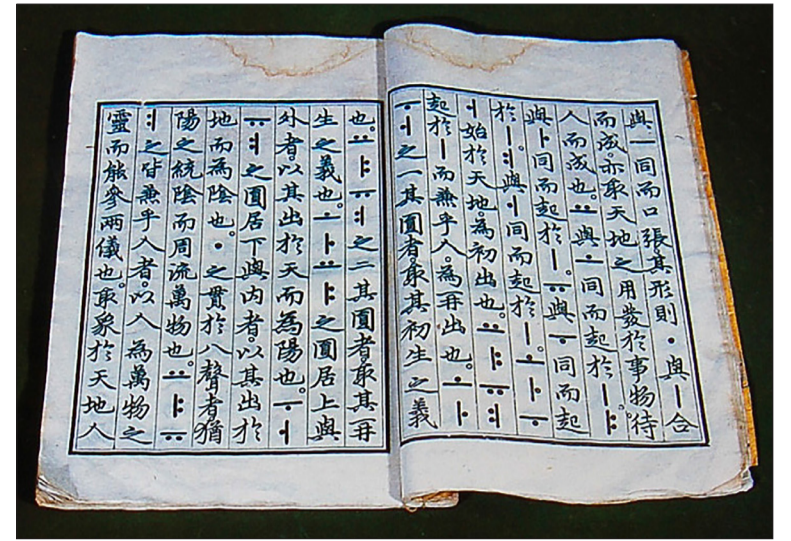 與ㅡ同而口張其形則ㆍ與ㅣ合
而成。亦取天地之用發於事物待
人而成也。ㅛ與ㅗ同而起於ㅣ。ㅑ
與ㅏ同而起於ㅣ。ㅠ與ㅜ同而起
於ㅣ。ㅕ與ㅓ同而起於ㅣ。ㅗㅏㅜ
ㅓ始於天地。為初出也。ㅛㅑㅠㅕ
起於ㅣ而兼乎人。為再出也。ㅗㅏ
ㅜㅓ之一其圓者。取其初生之義
也。ㅛㅑㅠㅕ之二其圓者。取其再
生之義也。ㅗㅏㅛㅑ之圓居上與
外者。以其出於天而為陽也。ㅜㅓ
ㅠㅕ之圓居下與內者。以其出於
地而為陰也。ㆍ之貫於八聲者。猶
陽之統陰而周流萬物也。ㅛㅑㅠ
ㅕ之皆兼乎人者。以人為萬物之
靈而能參兩儀也。取象於天地人